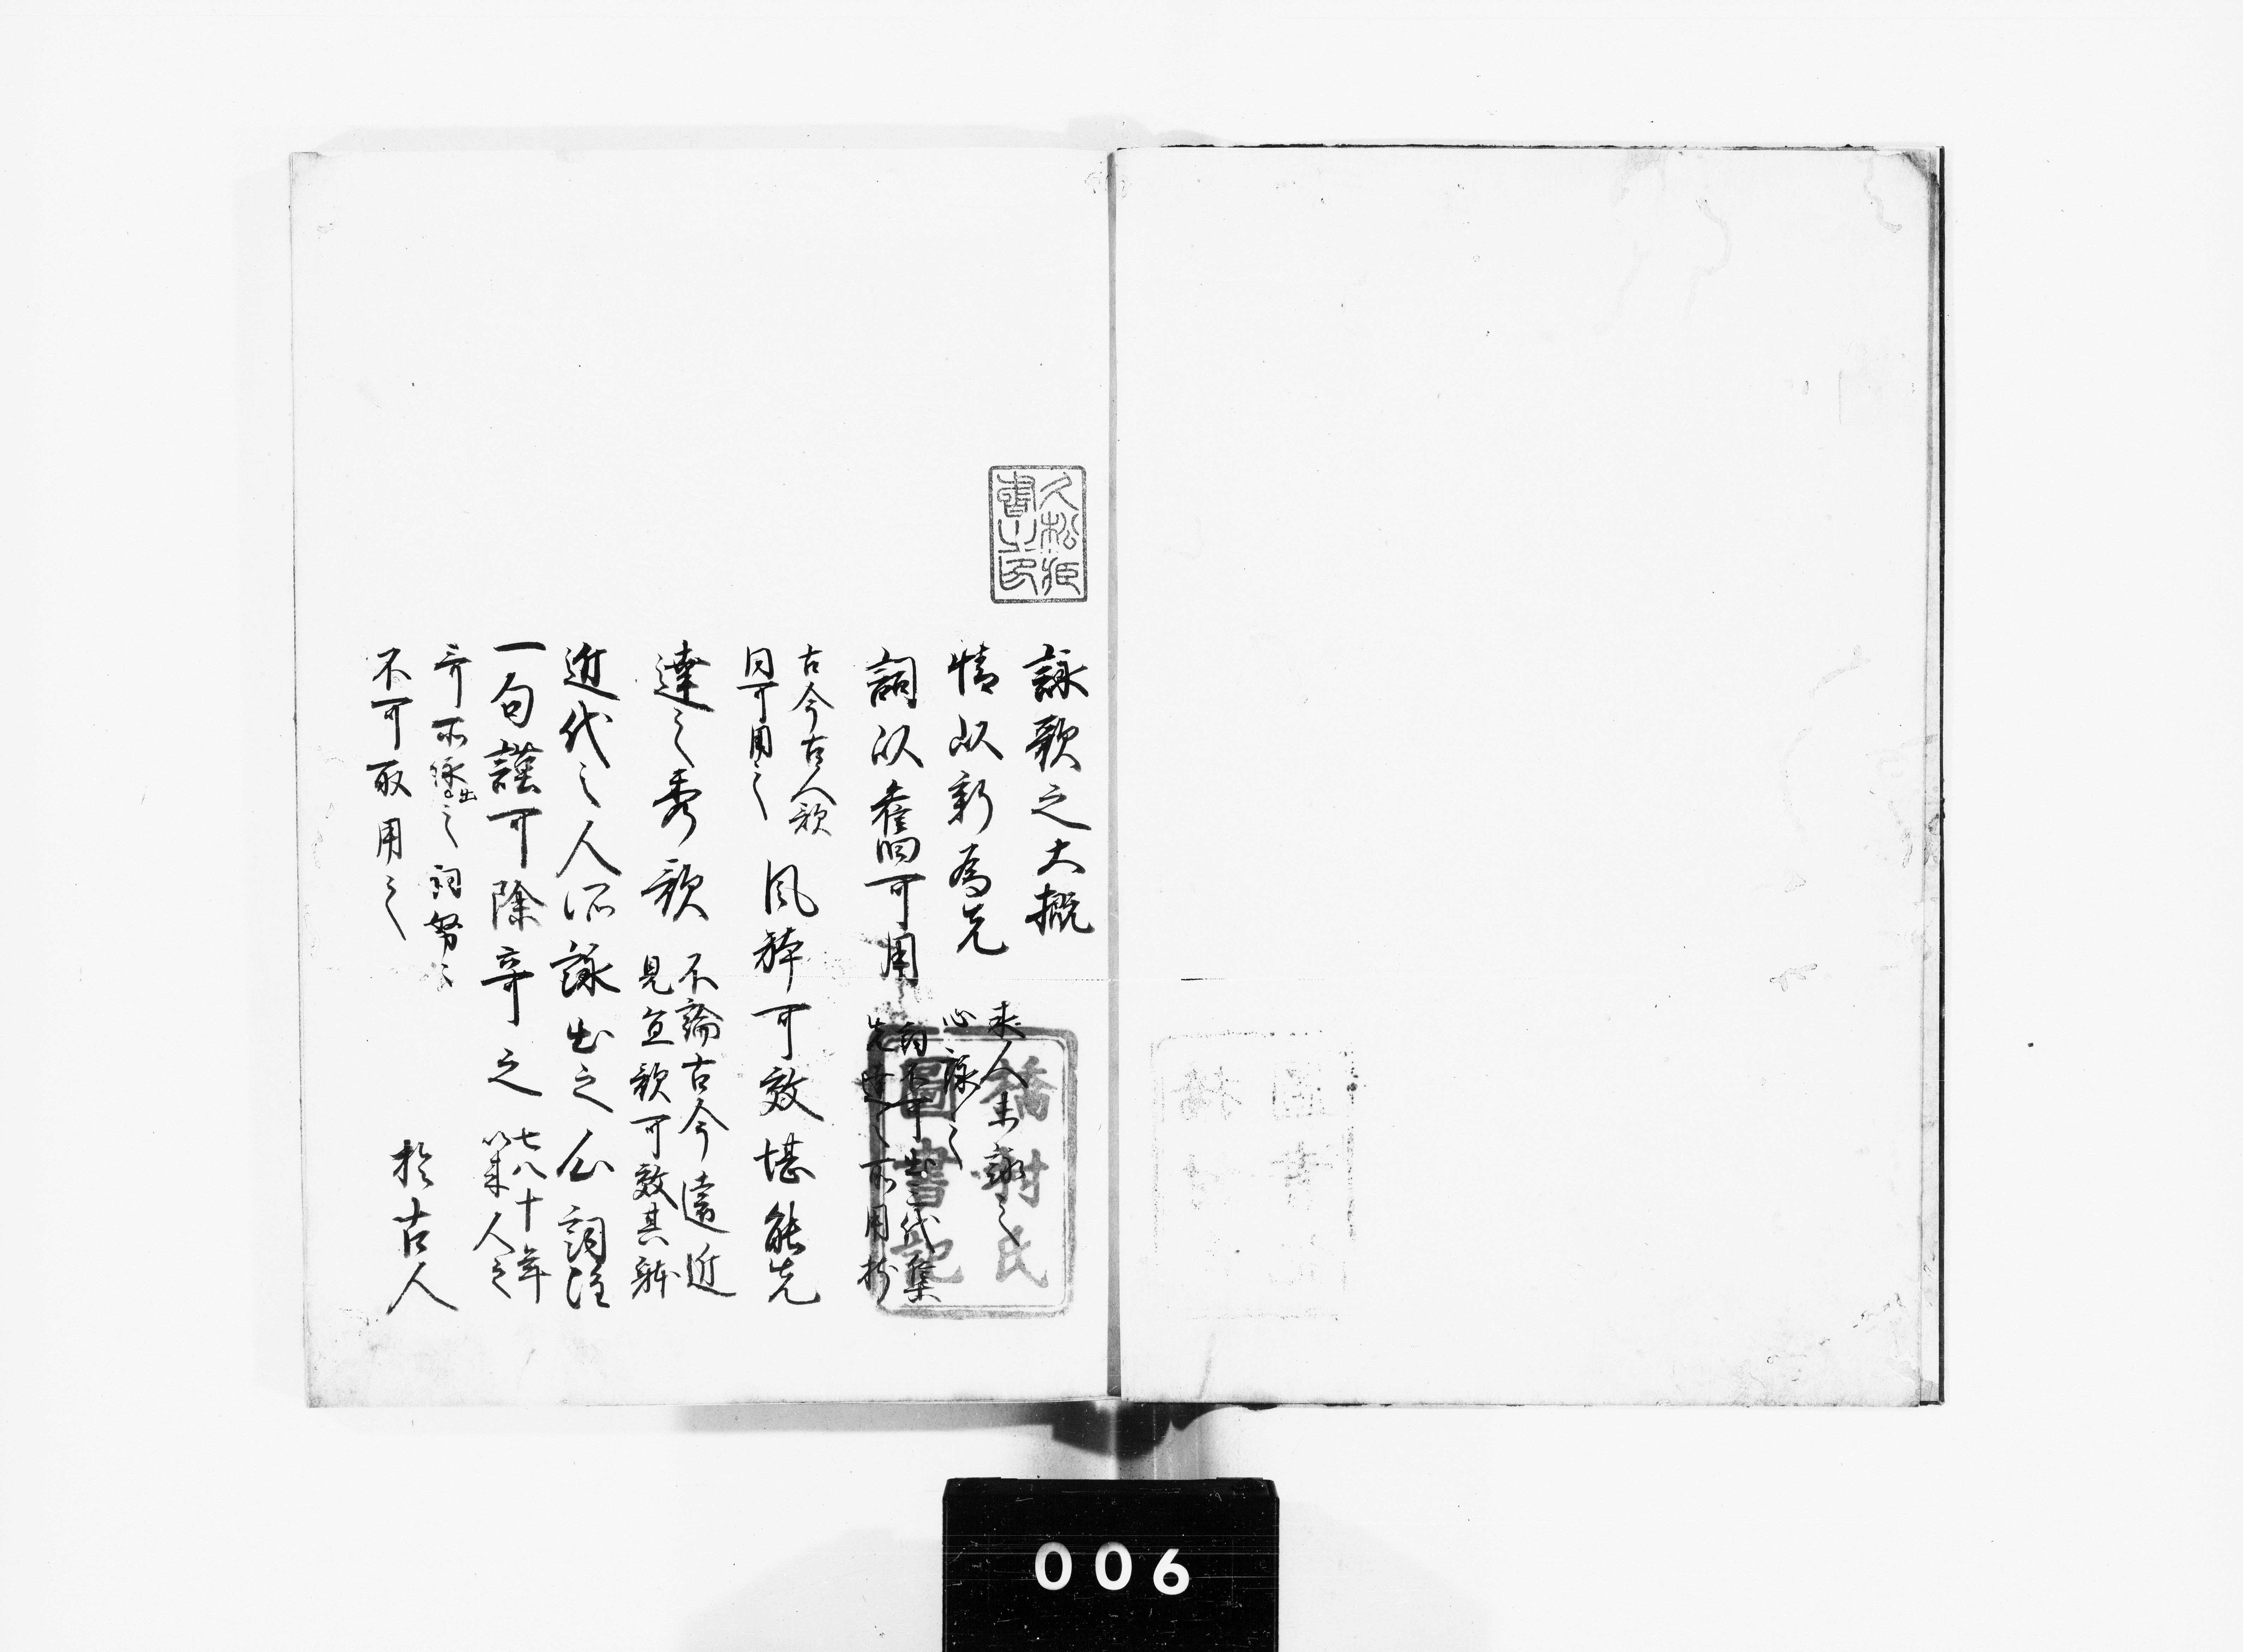 詠歌之大概
情以新為先
求人未詠之
心詠之
詞以舊可用
詞不可出三代集
先達之所用
古今古人歌
同可用之
風躰可效堪能先
達之秀歌
不論古今遠近
見宜歌可效其躰
近代之人所詠出之心詞
一句謹可除弃之
七八十年
以来人之
哥所詠出之詞努〻
不可取用之
於古人
久松家
書之印
橋村氏
圖書記
006